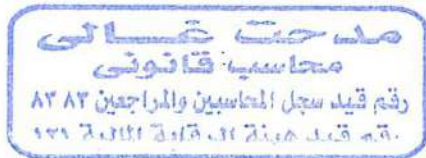 مدحت غالى
محاسب قانونى
رقم قيد سجل المحاسبين والمراجعين ٨٣ ٨٣
رقم قيد هيئة الرقابة المالية ١٣١